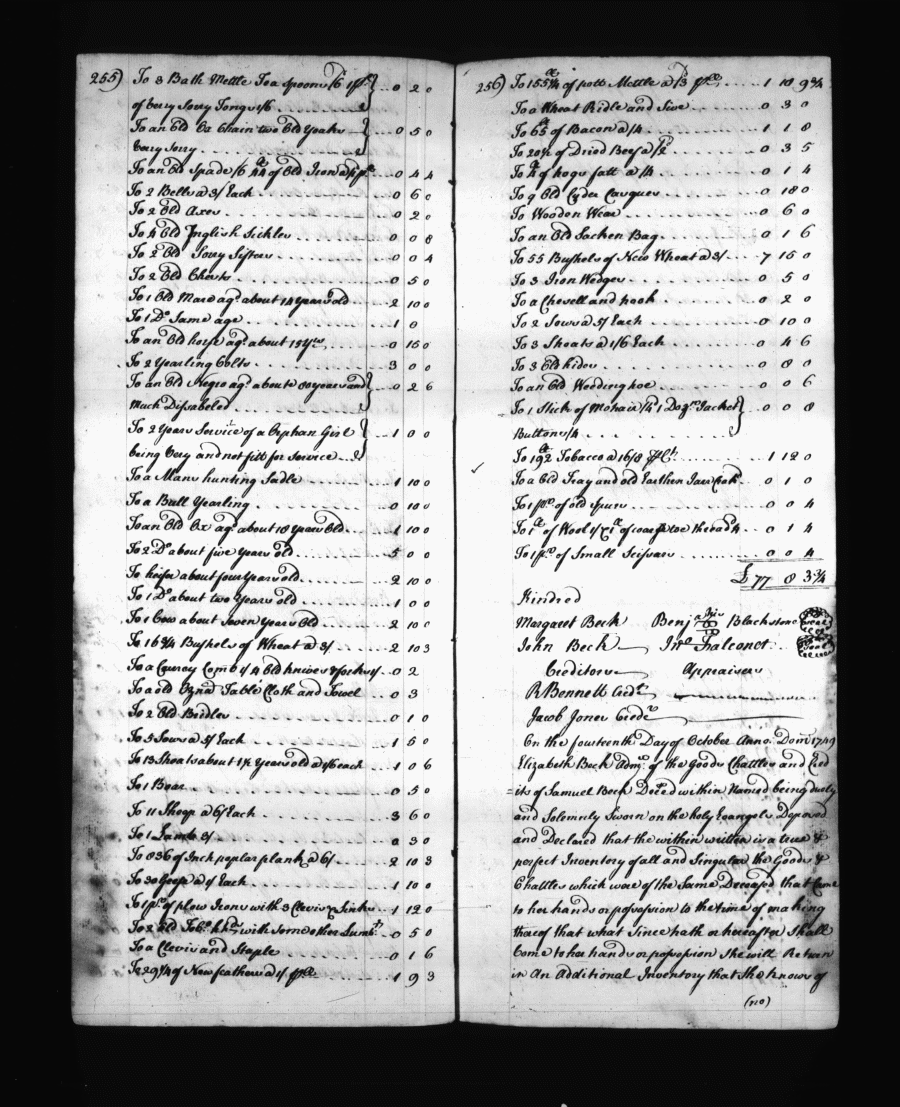 255)
To 3 Bath Mettle Tea spoons /6 1 pr. 0 2 0
of very Sorry Tongs 1/6
To an Old Ox Chain two Old Yoaks 0 5 0
very Sorry
To an Old Spade /6 44 lb of Old Iron a 1d pr. 0 4 4
To 2 Bells a 3/ Each 0 6 0
To 2 Old Axes 0 2 0
To 4 Old English Sickles 0 0 8
To 2 Old Sorry Sifters 0 0 4
To 2 Old Chests 0 5 0
To 1 Old Mare agd. about 14 years old 2 10 0
To 1 Do. Same age 1 0
To an Old horse agd. about 15 Yrs. 0 15 0
To 2 Yearling Colts 3 0 0
To an Old Negro agd. about 80 years and 0 2 6
Much Disabeled
To 2 Years Service of a Orphan Girl 1 0 0
being Very and not fitt for Service
To a Mans hunting Sadle 1 10 0
To a Bull Yearling 0 10 0
To an Old Ox agd. about 18 years Old 1 10 0
To 2 Do. about five Years old 5 0 0
To heifer about four Years old 2 10 0
To 1 Do. about two Years old 1 0 0
To 1 Cow about Seven Years Old 2 10 0
To 16 3/4 Bushels of Wheat a 3/ 2 10 3
To a Currey Comb 1/ 4 Old knives & forks 1/ 0 2
To a old Oznd. Table Cloth and Towel 0 3
To 2 Old Bridles 0 1 0
To 5 Sows a 5/ Each 1 5 0
To 13 Shoats about 1 1/2 Years old a 1/6 each 1 0 6
To 1 Boar 0 5 0
To 11 Sheep a 6/ Each 3 6 0
To 1 Lamb 3/ 0 3 0
To 836 of Inch poplar plank a 6/ 2 10 3
To 30 Geese a 1/ Each 1 10 0
To 1 pr. of plow Irons with 3 Clevis & Links 1 12 0
To 2 Old Tobo. hhds. with Some other Lumbr. 0 5 0
To a Clevis and Staple 0 1 6
To 29 1/4 of New feathers a 1/ pr lb 1 9 3
256)
To 155 1/4 lb of pott Mettle a /3 pr lb 1 18 9 3/4
To a Wheat Ridle and Sive 0 3 0
To 65 lb of Bacon a /4 1 1 8
To 20 1/2 of Dried Beef a /2 0 3 5
To 4 lb of hogs fatt a /4 0 1 4
To 9 Old Cyder Casques 0 18 0
To Wooden Ware 0 6 0
To an Old Sacken Bag 0 1 6
To 55 Bushels of New Wheat a 3/ 7 15 0
To 3 Iron Wedges 0 5 0
To a Chevell and hook 0 2 0
To 2 Sows a 5/ Each 0 10 0
To 3 Shoats a 1/6 Each 0 4 6
To 3 Old hides 0 8 0
To an Old Weeding hoe 0 0 6
To 1 Stick of Mohair /4 1 Dozn. Jacket 0 0 8
Buttons /4
To 192 lb Tobacco a 16/8 pr Ct. 1 12 0
To a Old Tray and old Earthen Jarr 0 1 0
To 1 pr. of old Spurs 0 0 4
To 1 lb of Wool 1/ 1 lb of coarse toe thread 4 0 1 4
To 1 pr. of Small Scissars 0 0 4
£ 77 8 3 3/4
Kindred
Margaret Beck Benja Blackstone Seal
John Beck Jno. Falconer Seal
Creditors Appraisers
R Bennett Credr.
Jacob Jones Credr.
On the fourteenth Day of October Anno. Dom 1749
Elizabeth Beck Admx. of the Goods Chattles and Cred
its of Samuel Beck Deced within Named being duely
and Solemnly Sworn on the holy Evangels Deposed
and Declared that the within written is a true &
perfect Inventory of all and Singular the Goods &
Chattles which were of the Same Deceased that Came
to her hands or possession to the time of making
thereof that what Since hath or hereafter Shall
Come to her hands or possession She will Return
in An Additional Inventory that She knows of
(no)